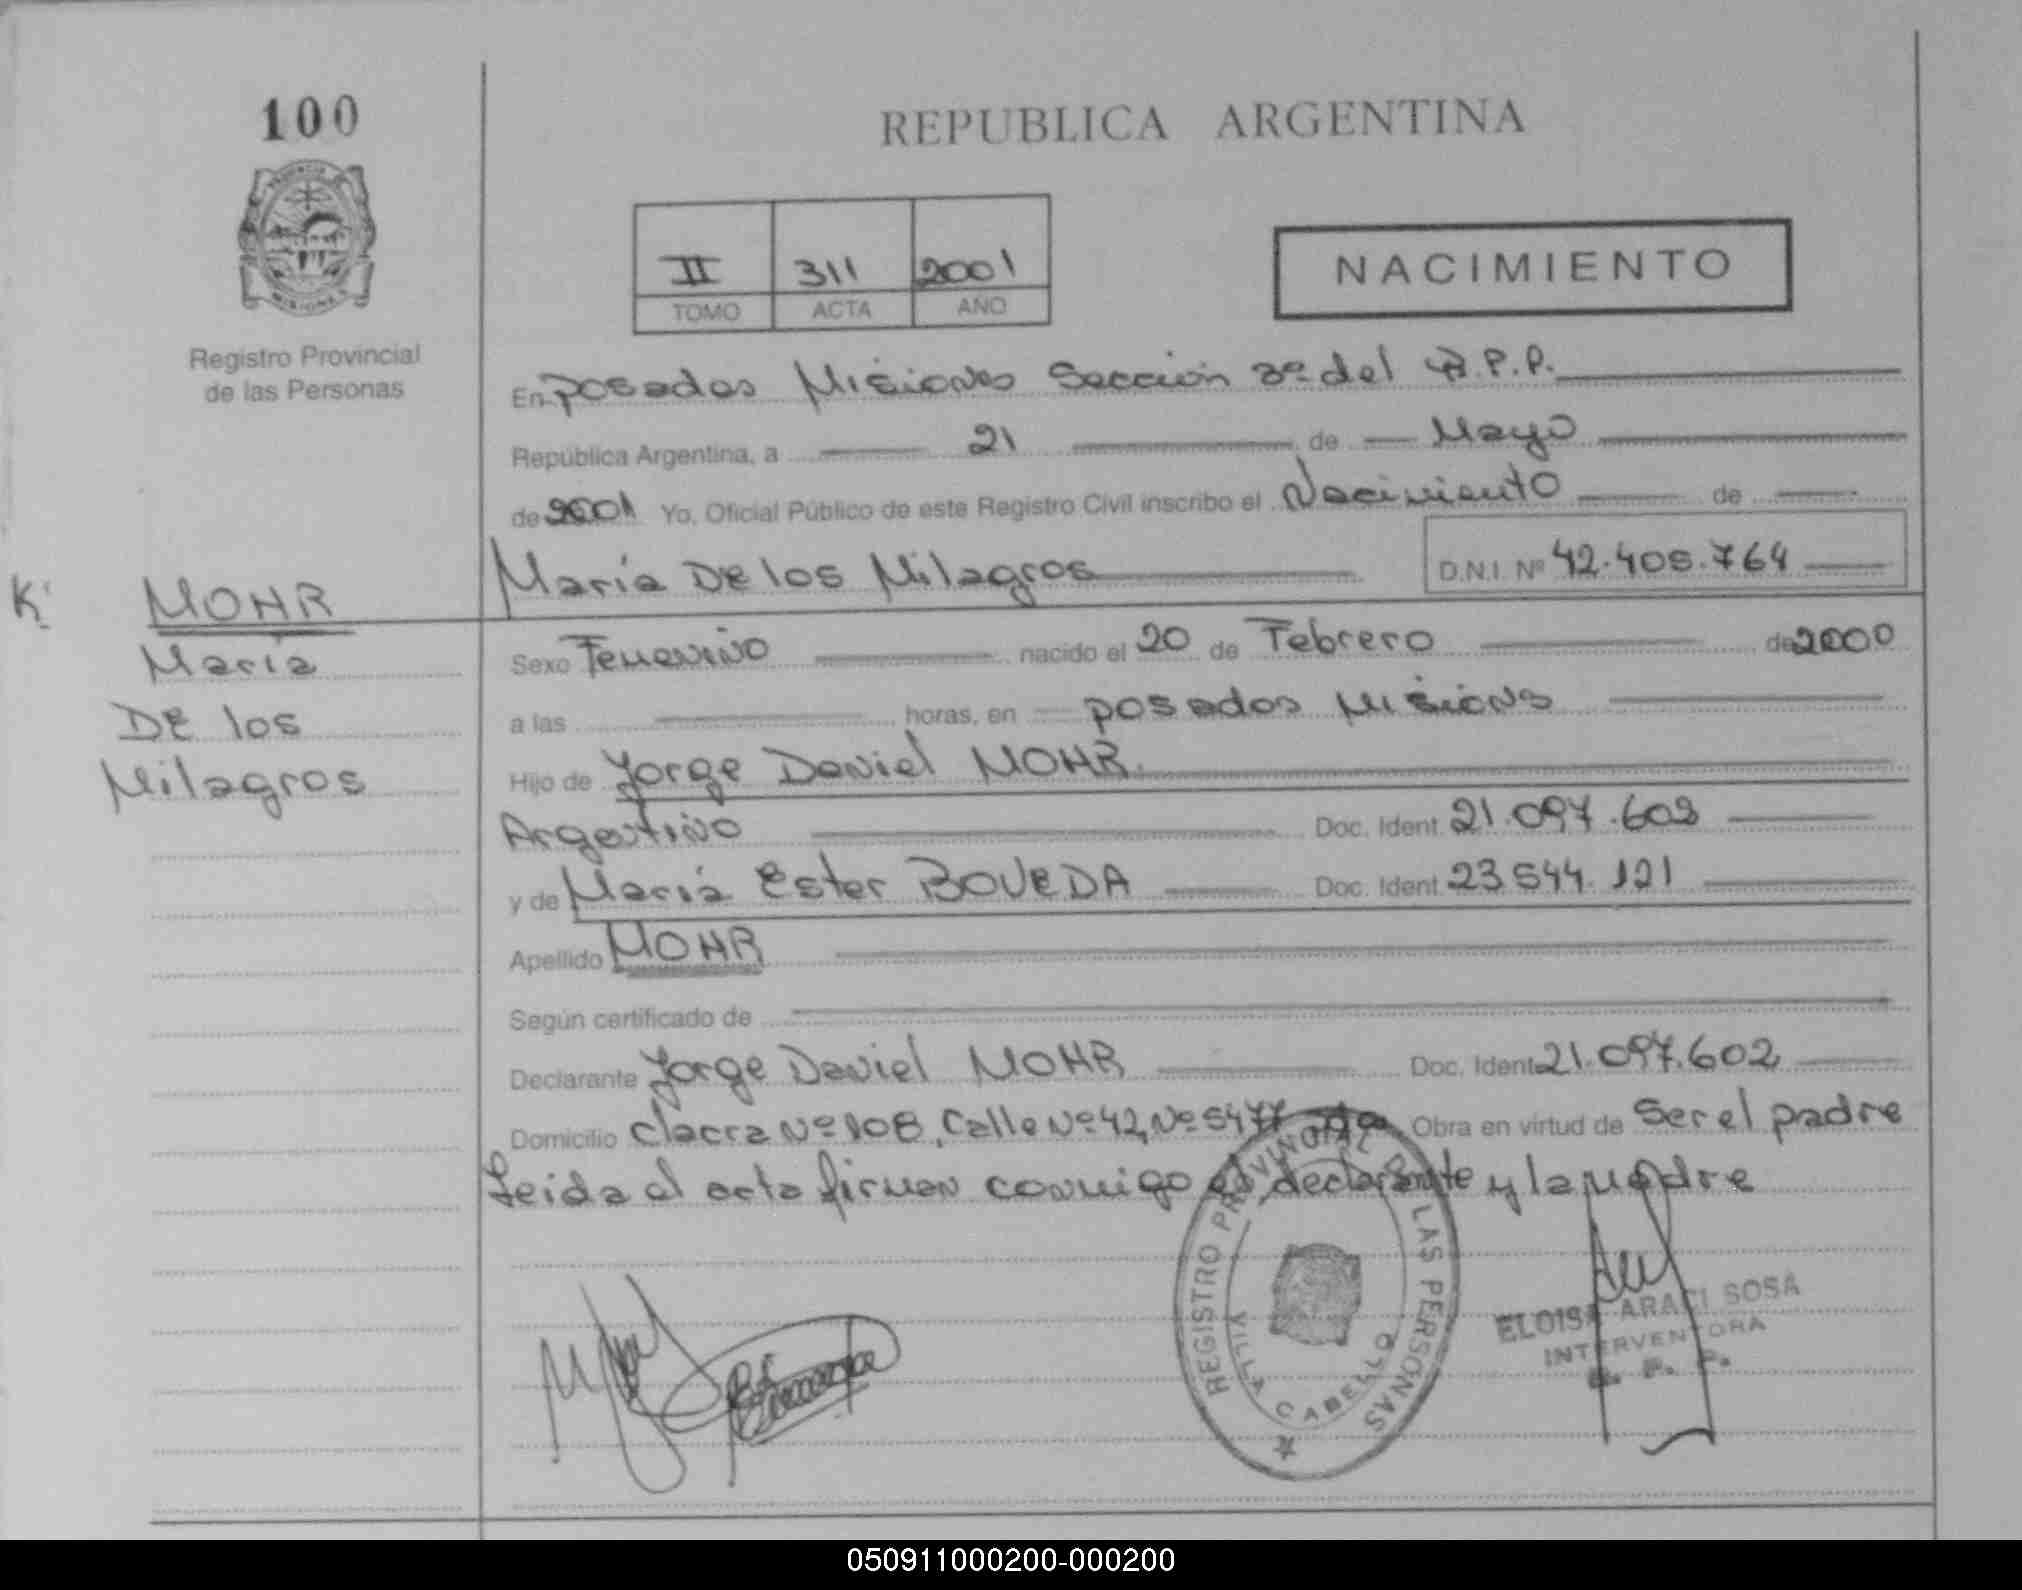 100
REPUBLICA ARGENTINA
PROVINCIA
MISIONES
Registro Provincial
de las Personas
II 311 2001
TOMO ACTA AÑO
NACIMIENTO
En Posadas Misiones Sección 3º del R.P.P.
República Argentina, a 21 de Mayo
de 2001 Yo, Oficial Público de este Registro Civil inscribo el Nacimiento de
María De los Milagros D.N.I. Nº 42.405.764
K
MOHR
María
De los
Milagros
Sexo Femenino nacido el 20 de Febrero de 2000
a las horas, en Posadas Misiones
Hijo de Jorge Daniel MOHR
Argentino Doc. Ident. 21.097.602
y de María Ester BOVEDA Doc. Ident. 23.544.121
Apellido MOHR
Según certificado de
Declarante Jorge Daniel MOHR Doc. Ident. 21.097.602
Domicilio Chacra Nº 108, Calle Nº 42, Nº 5477 Obra en virtud de Ser el padre
Leida el acta firman conmigo el declarante y la madre
REGISTRO PROVINCIAL DE LAS PERSONAS
VILLA CABELLO
ELOISA ARACI SOSA
INTERVENTORA
R. P. P.
050911000200-000200